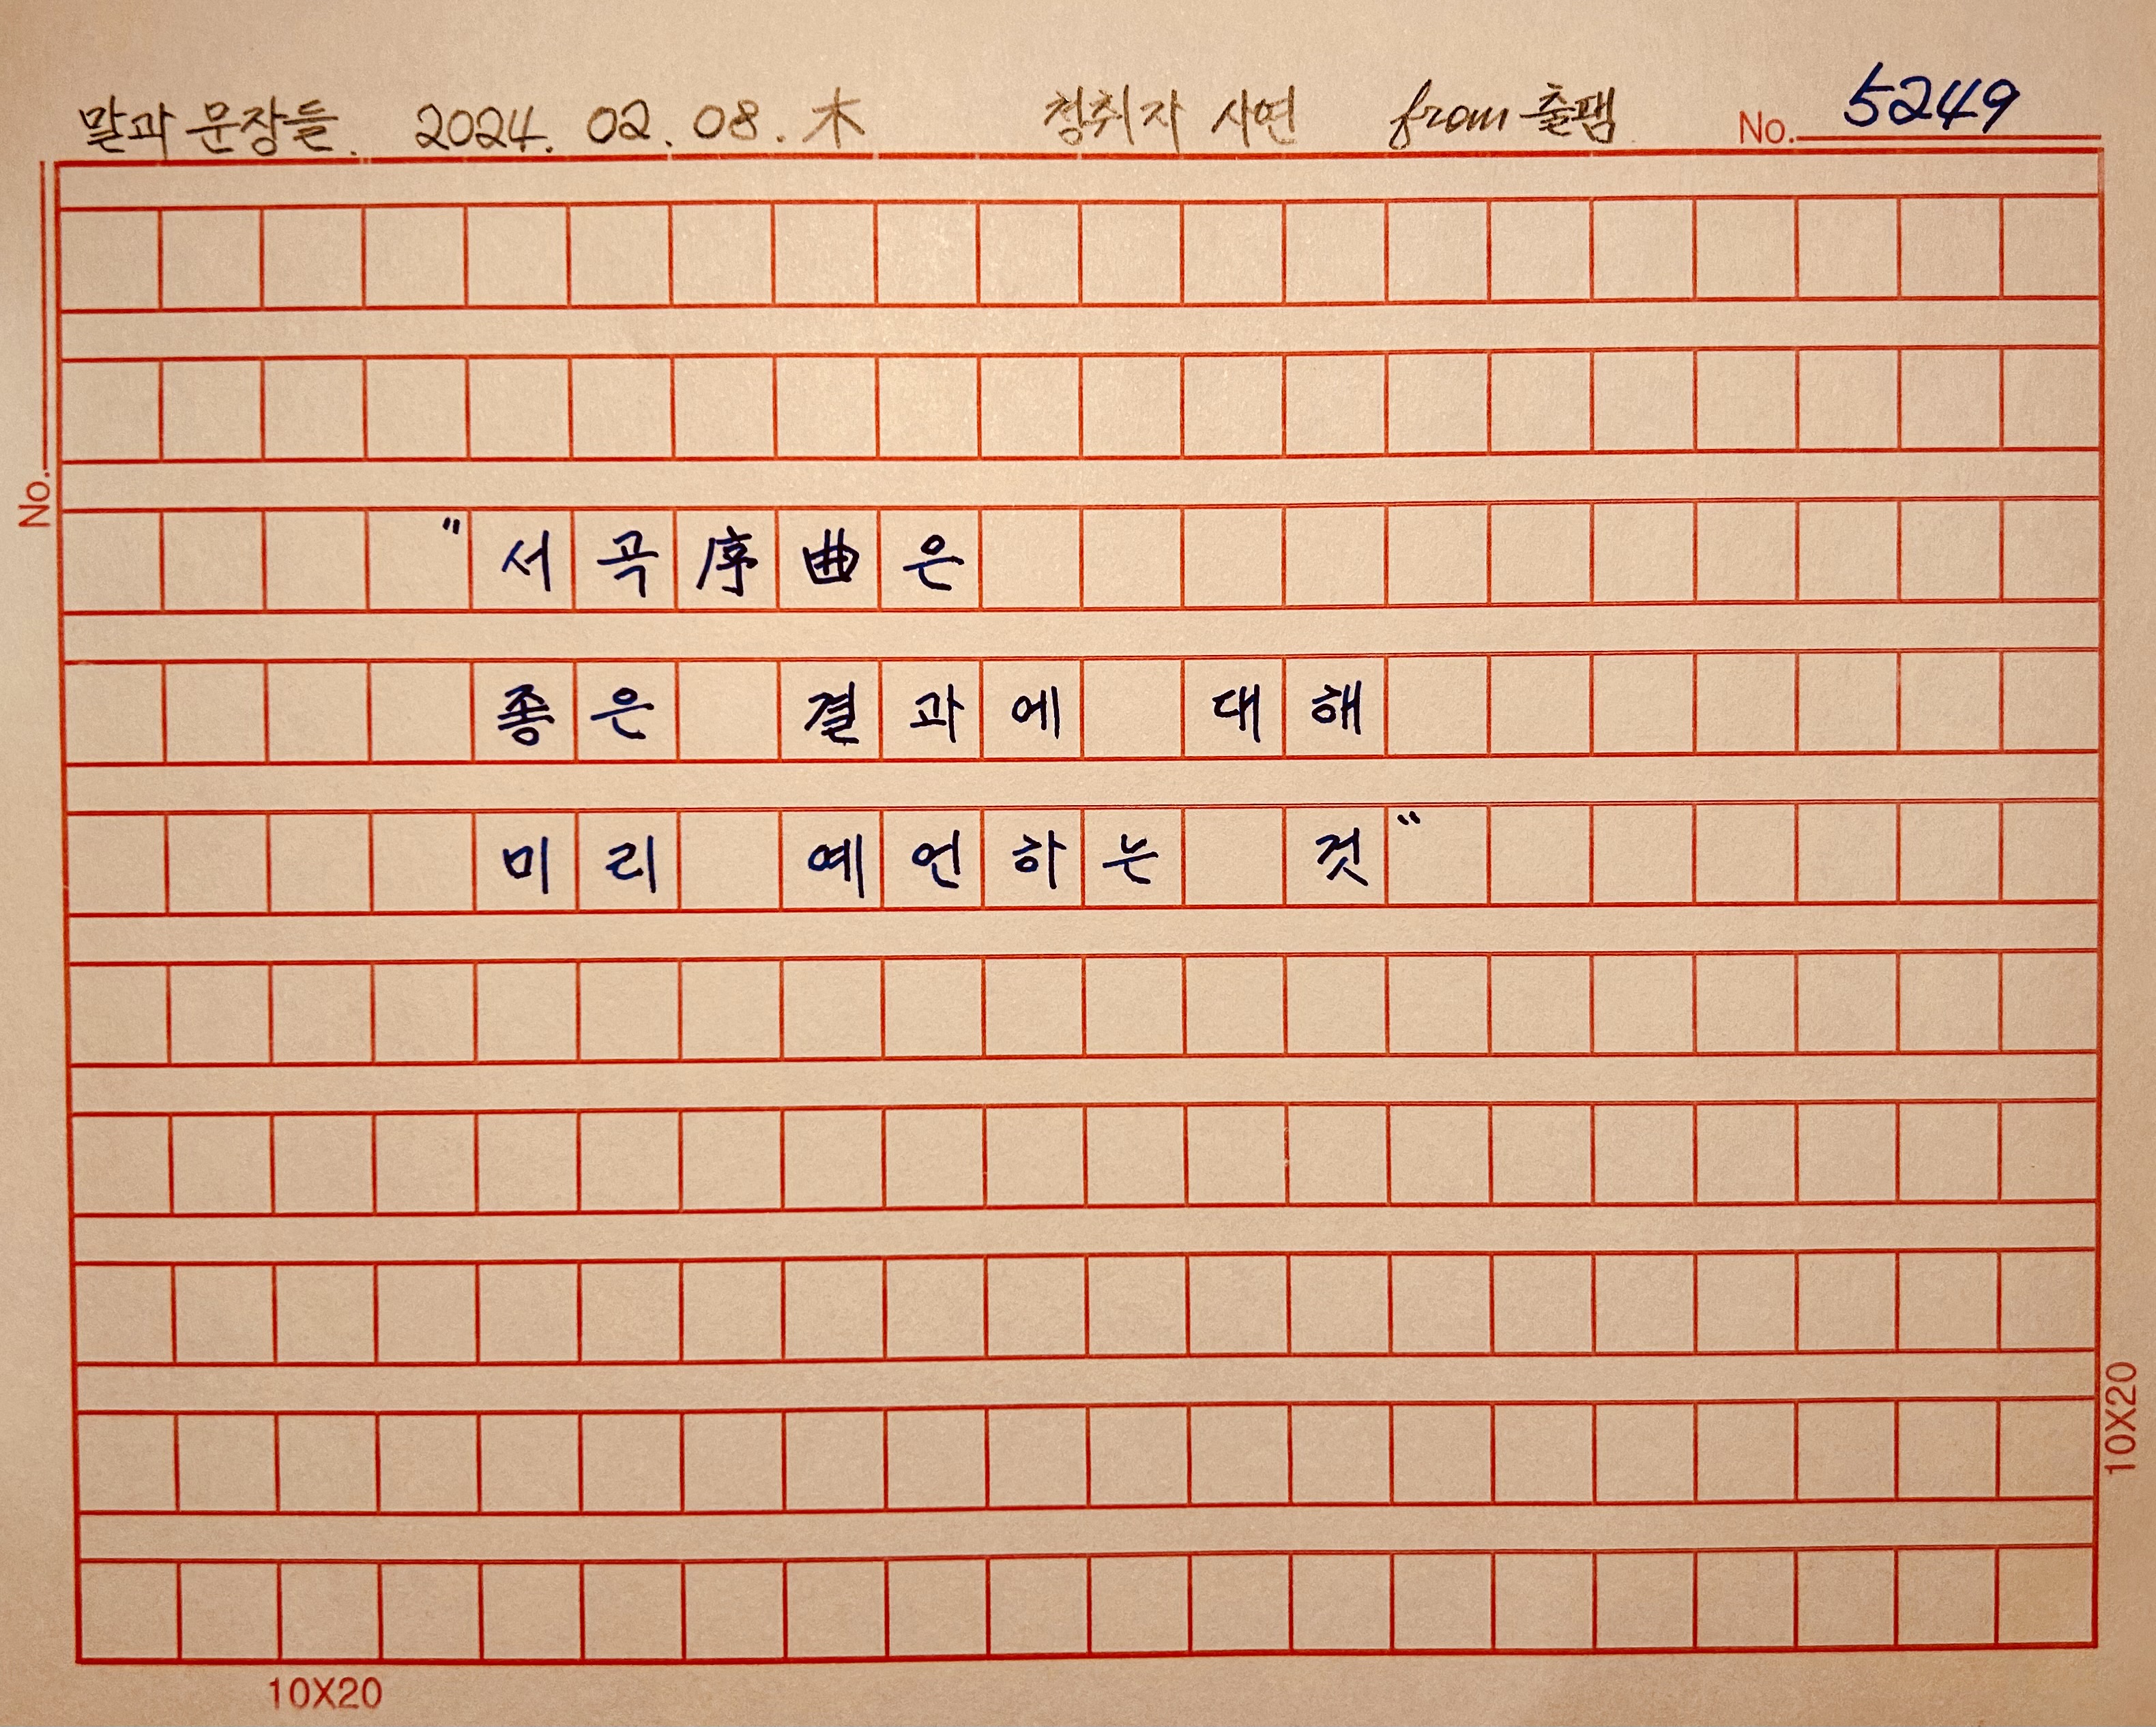 말과 문장들. 2024. 02. 08. 木 청취자 사연 from 출팸 No. 5249
No.
"서곡序曲은
좋은 결과에 대해
미리 예언하는 것"
10X20
10X20